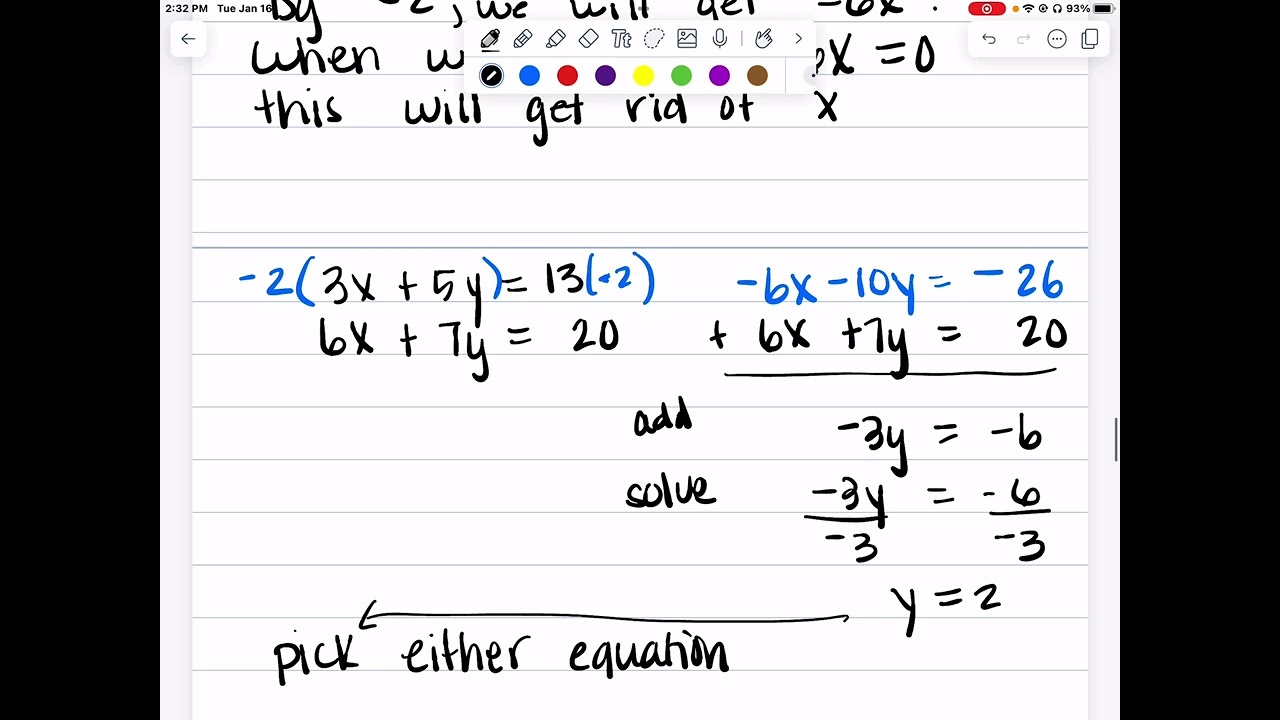 2:32 PM Tue Jan 16
93%
by -2, we will get -6x.
Tt
when w x = 0
this will get rid of x
-2(3x + 5y) = 13(-2)
6x + 7y = 20
-6x - 10y = -26
+ 6x + 7y = 20
add -3y = -6
solve -3y = -6
-3 -3
y = 2
pick either equation